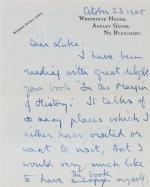 October 23 1965
WESTRIDGE HOUSE,
ASPLEY GUISE,
NR. BLETCHLEY.
Dear Luke,
I have been
reading with great delight
your book "In the Margin
of History". It talks of
so many places which I
either have visited or
want to visit, that I
would very much like
to have the book myself.